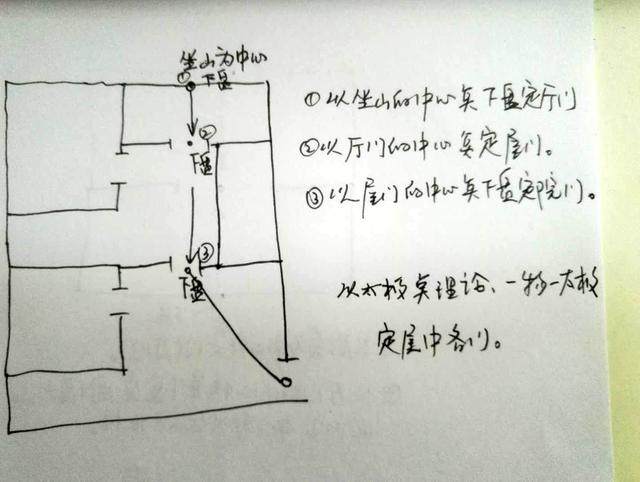 坐山为中心
①下盘
②
下盘
③
下盘
①以坐山的中心点下盘定厅门
②以厅门的中心点定屋门。
③以屋门的中心点下盘定院门。
以太极点理论、一物一太极
定屋中各门。